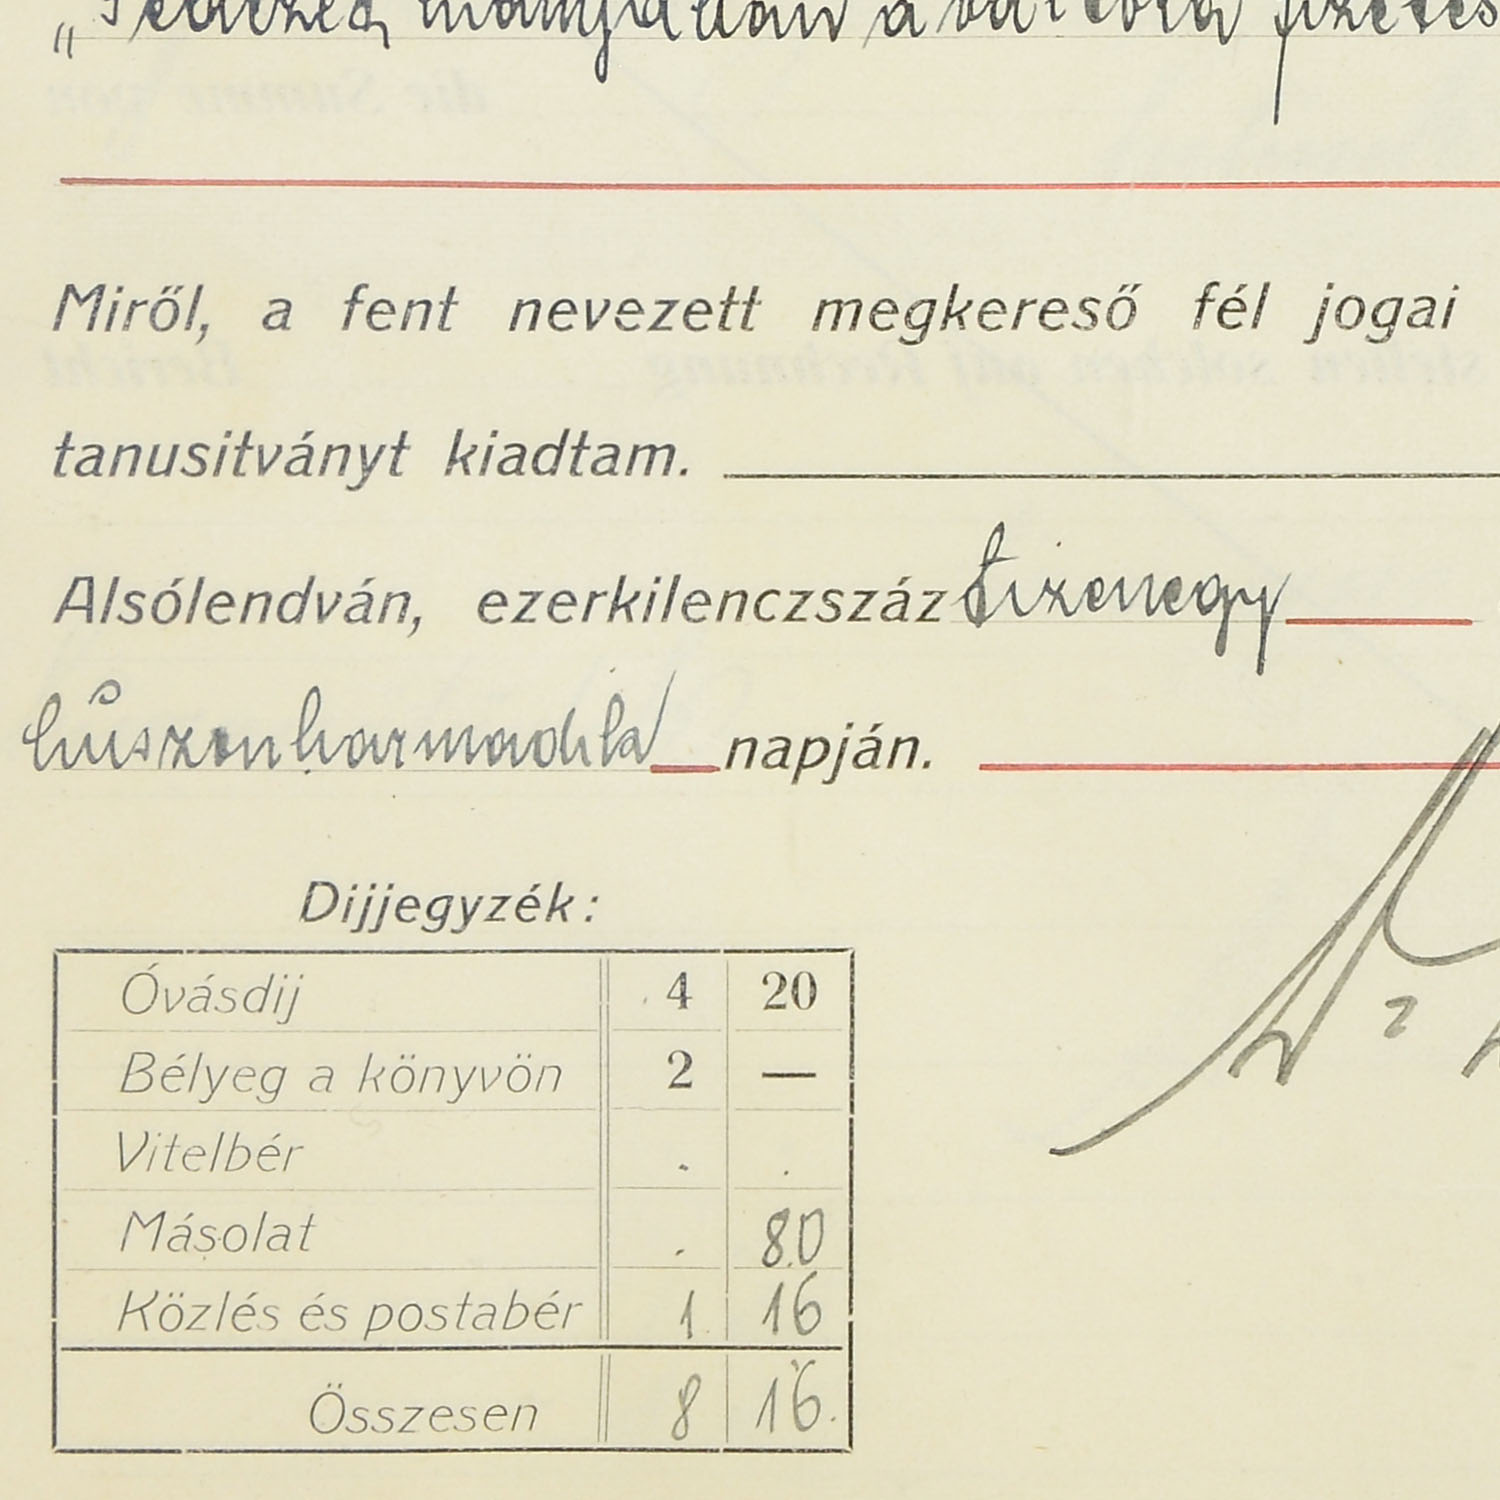 „Fedezet hiányában a váltóra fizetés
Miről, a fent nevezett megkereső fél jogai
tanusitványt kiadtam.
Alsólendván, ezerkilenczszáz tizenegy
huszonharmadik napján.
Dijjegyzék:
Óvásdij 4 20
Bélyeg a könyvön 2 —
Vitelbér . .
Másolat . 80
Közlés és postabér 1 16
Összesen 8 16